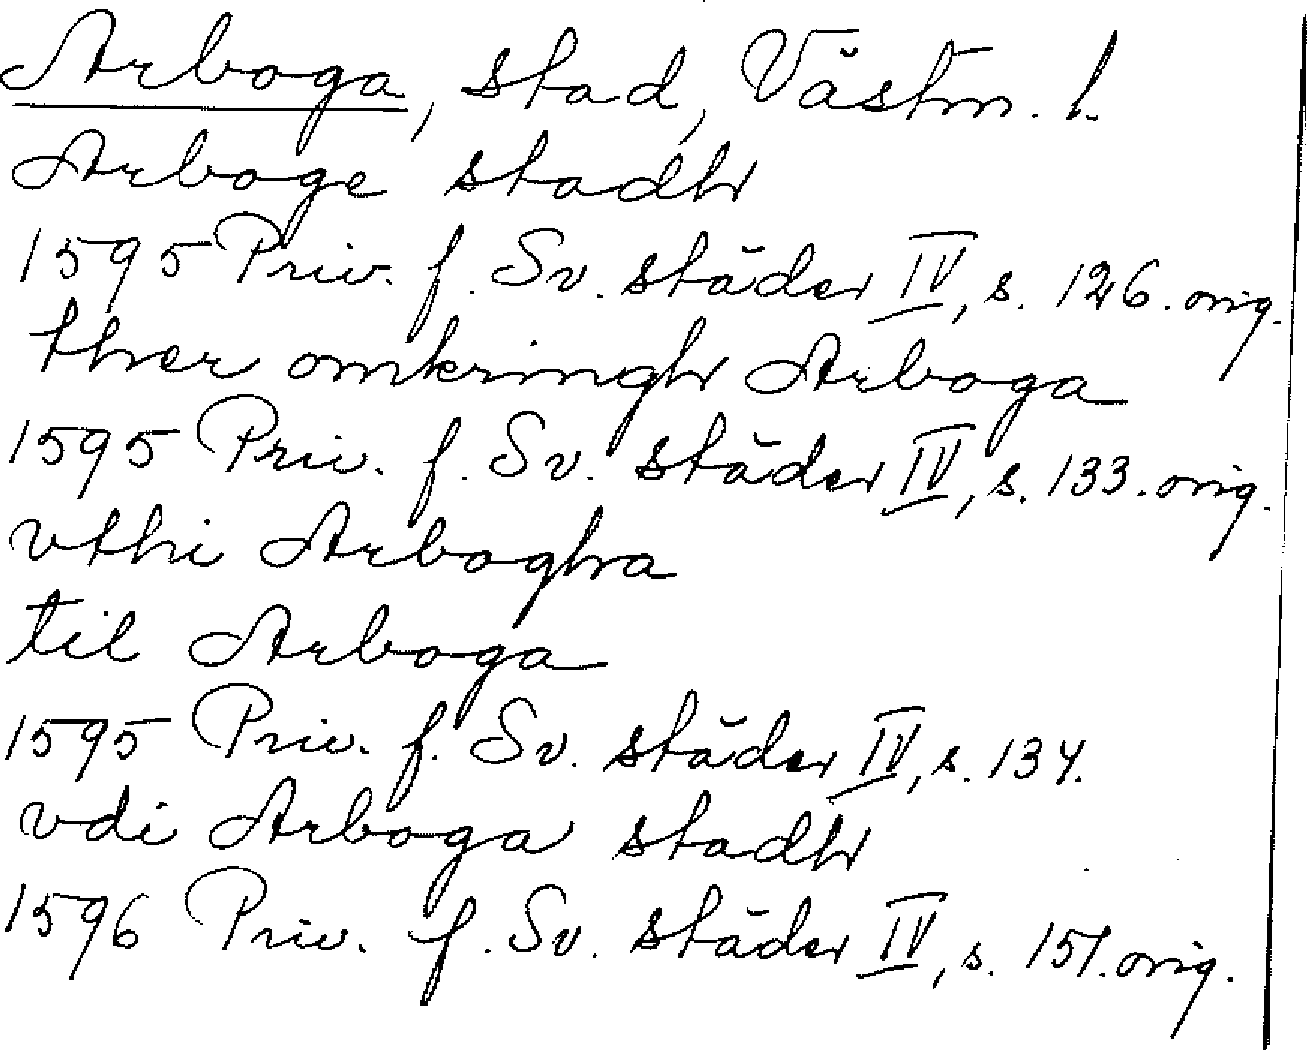 Arboga, stad, Västm. l.
Arboge stadh
1595 Priv. f. Sv. städer IV, s. 126. orig.
ther omkringh Arboga
1595 Priv. f. Sv. städer IV, s. 133. orig.
vthi Arbogha
til Arboga
1595 Priv. f. Sv. städer IV, s. 134.
vdi Arboga stadh
1596 Priv. f. Sv. städer IV, s. 151. orig.